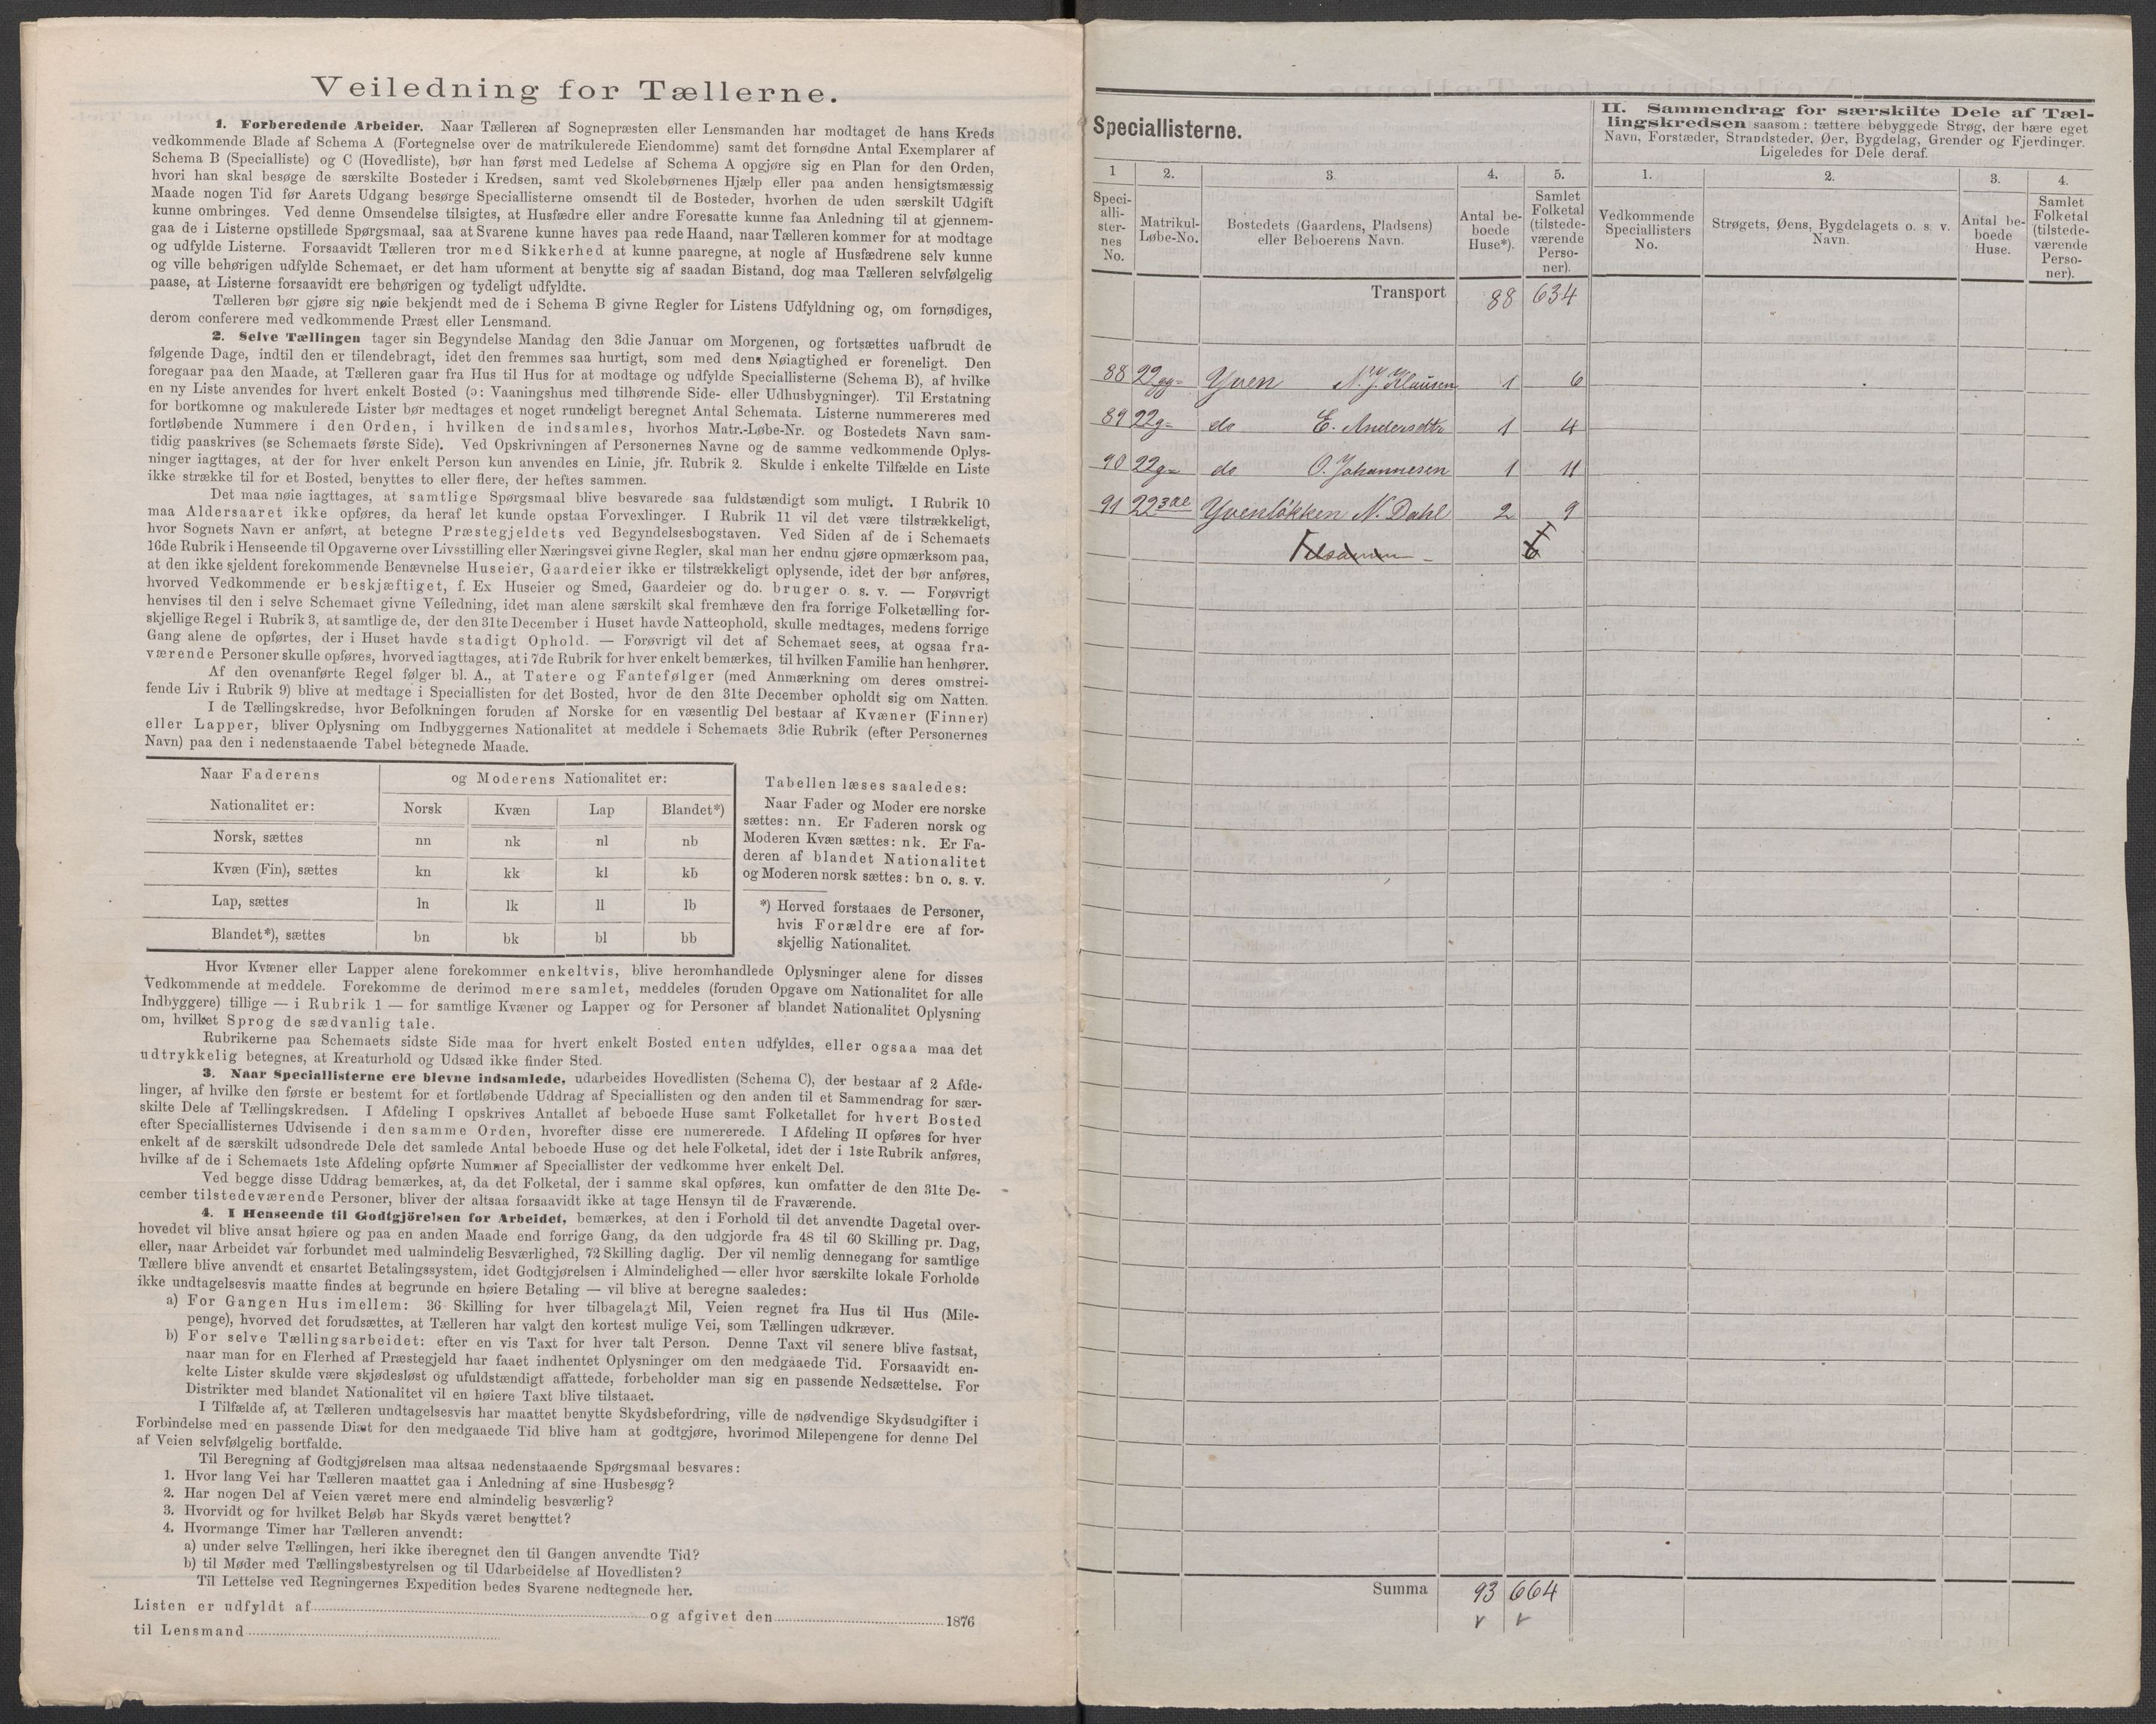 Veiledning for Tællerne.
1. Forberedende Arbeider. Naar Tælleren af Sognepræsten eller Lensmanden har modtaget de hans Kreds
vedkommende Blade af Schema A (Fortegnelse over de matrikulerede Eiendomme) samt det fornødne Antal Exemplarer af
Schema B (Specialliste) og C (Hovedliste), bør han først med Ledelse af Schema A opgjøre sig en Plan for den Orden,
hvori han skal besøge de særskilte Bosteder i Kredsen, samt ved Skolebørnenes Hjælp eller paa anden hensigtsmæssig
Maade nogen Tid før Aarets Udgang besørge Speciallisterne omsendt til de Bosteder, hvorhen de uden særskilt Udgift
kunne ombringes. Ved denne Omsendelse tilsigtes, at Husfædre eller andre Foresatte kunne faa Anledning til at gjennem-
gaa de i Listerne opstillede Spørgsmaal, saa at Svarene kunne haves paa rede Haand, naar Tælleren kommer for at modtage
og udfylde Listerne. Forsaavidt Tælleren tror med Sikkerhed at kunne paaregne, at nogle af Husfædrene selv kunne
og ville behørigen udfylde Schemaet, er det ham uforment at benytte sig af saadan Bistand, dog maa Tælleren selvfølgelig
paase, at Listerne forsaavidt ere behørigen og tydeligt udfyldte.
Tælleren bør gjøre sig nøie bekjendt med de i Schema B givne Regler for Listens Udfyldning og, om fornødiges,
derom conferere med vedkommende Præst eller Lensmand.
2. Selve Tællingen tager sin Begyndelse Mandag den 3die Januar om Morgenen, og fortsættes uafbrudt de
følgende Dage, indtil den er tilendebragt, idet den fremmes saa hurtigt, som med dens Nøiagtighed er foreneligt. Den
foregaar paa den Maade, at Tælleren gaar fra Hus til Hus for at modtage og udfylde Speciallisterne (Schema B), af hvilke
en ny Liste anvendes for hvert enkelt Bosted (ɔ: Vaaningshus med tilhørende Side- eller Udhusbygninger). Til Erstatning
for bortkomne og makulerede Lister bør medtages et noget rundeligt beregnet Antal Schemata. Listerne nummereres med
fortløbende Nummere i den Orden, i hvilken de indsamles, hvorhos Matr.-Løbe-Nr. og Bostedets Navn sam-
tidig paaskrives (se Schemaets første Side). Ved Opskrivningen af Personernes Navne og de samme vedkommende Oplys-
ninger iagttages, at der for hver enkelt Person kun anvendes en Linie, jfr. Rubrik 2. Skulde i enkelte Tilfælde en Liste
ikke strække til for et Bosted, benyttes to eller flere, der heftes sammen.
Det maa nøie iagttages, at samtlige Spørgsmaal blive besvarede saa fuldstændigt som muligt. I Rubrik 10
maa Aldersaaret ikke opføres, da heraf let kunde opstaa Forvexlinger. I Rubrik 11 vil det være tilstrækkeligt,
hvor Sognets Navn er anført, at betegne Præstegjeldets ved Begyndelsesbogstaven. Ved Siden af de i Schemaets
16de Rubrik i Henseende til Opgaverne over Livsstilling eller Næringsvei givne Regler, skal man her endnu gjøre opmærksom paa,
at den ikke sjeldent forekommende Benævnelse Huseier, Gaardeier ikke er tilstrækkeligt oplysende, idet der bør anføres,
hvorved Vedkommende er beskjæftiget, f. Ex Huseier og Smed, Gaardeier og do. bruger o. s. v. — Forøvrigt
henvises til den i selve Schemaet givne Veiledning, idet man alene særskilt skal fremhæve den fra forrige Folketælling for-
skjellige Regel i Rubrik 3, at samtlige de, der den 31te December i Huset havde Natteophold, skulle medtages, medens forrige
Gang alene de opførtes, der i Huset havde stadigt Ophold. — Forøvrigt vil det af Schemaet sees, at ogsaa fra-
værende Personer skulle opføres, hvorved iagttages, at i 7de Rubrik for hver enkelt bemærkes, til hvilken Familie han henhører.
Af den ovenanførte Regel følger bl. A., at Tatere og Fantefølger (med Anmærkning om deres omstrei-
fende Liv i Rubrik 9) blive at medtage i Speciallisten for det Bosted, hvor de den 31te December opholdt sig om Natten.
I de Tællingskredse, hvor Befolkningen foruden af Norske for en væsentlig Del bestaar af Kvæner (Finner)
eller Lapper, bliver Oplysning om Indbyggernes Nationalitet at meddele i Schemaets 3die Rubrik (efter Personernes
Navn) paa den i nedenstaaende Tabel betegnede Maade.
Naar Faderens og Moderens Nationalitet er:
Nationalitet er: Norsk Kvæn Lap Blandet*)
Norsk, sættes nn nk nl nb
Kvæn (Fin), sættes kn kk kl kb
Lap, sættes ln lk ll lb
Blandet*), sættes bn bk bl bb
Tabellen læses saaledes:
Naar Fader og Moder ere norske
sættes: nn. Er Faderen norsk og
Moderen Kvæn sættes: nk. Er Fa-
deren af blandet Nationalitet
og Moderen norsk sættes: bn o. s. v.
*) Herved forstaaes de Personer,
hvis Forældre ere af for-
skjellig Nationalitet.
Hvor Kvæner eller Lapper alene forekommer enkeltvis, blive heromhandlede Oplysninger alene for disses
Vedkommende at meddele. Forekomme de derimod mere samlet, meddeles (foruden Opgave om Nationalitet for alle
Indbyggere) tillige — i Rubrik 1 — for samtlige Kvæner og Lapper og for Personer af blandet Nationalitet Oplysning
om, hvilket Sprog de sædvanlig tale.
Rubrikerne paa Schemaets sidste Side maa for hvert enkelt Bosted enten udfyldes, eller ogsaa maa det
udtrykkelig betegnes, at Kreaturhold og Udsæd ikke finder Sted.
3. Naar Speciallisterne ere blevne indsamlede, udarbeides Hovedlisten (Schema C), der bestaar af 2 Afde-
linger, af hvilke den første er bestemt for et fortløbende Uddrag af Speciallisten og den anden til et Sammendrag for sær-
skilte Dele af Tællingskredsen. I Afdeling I opskrives Antallet af beboede Huse samt Folketallet for hvert Bosted
efter Speciallisternes Udvisende i den samme Orden, hvorefter disse ere numererede. I Afdeling II opføres for hver
enkelt af de særskilt udsondrede Dele det samlede Antal beboede Huse og det hele Folketal, idet der i 1ste Rubrik anføres,
hvilke af de i Schemaets 1ste Afdeling opførte Nummer af Speciallister der vedkomme hver enkelt Del.
Ved begge disse Uddrag bemærkes, at, da det Folketal, der i samme skal opføres, kun omfatter de den 31te De-
cember tilstedeværende Personer, bliver der altsaa forsaavidt ikke at tage Hensyn til de Fraværende.
4. I Henseende til Godtgjörelsen for Arbeidet, bemærkes, at den i Forhold til det anvendte Dagetal over-
hovedet vil blive ansat høiere og paa en anden Maade end forrige Gang, da den udgjorde fra 48 til 60 Skilling pr. Dag,
eller, naar Arbeidet var forbundet med ualmindelig Besværlighed, 72 Skilling daglig. Der vil nemlig dennegang for samtlige
Tællere blive anvendt et ensartet Betalingssystem, idet Godtgjørelsen i Almindelighed — eller hvor særskilte lokale Forholde
ikke undtagelsesvis maatte findes at begrunde en høiere Betaling — vil blive at beregne saaledes:
a) For Gangen Hus imellem: 36 Skilling for hver tilbagelagt Mil, Veien regnet fra Hus til Hus (Mile-
penge), hvorved det forudsættes, at Tælleren har valgt den kortest mulige Vei, som Tællingen udkræver.
b) For selve Tællingsarbeidet: efter en vis Taxt for hver talt Person. Denne Taxt vil senere blive fastsat,
naar man for en Flerhed af Præstegjeld har faaet indhentet Oplysninger om den medgaaede Tid. Forsaavidt en-
kelte Lister skulde være skjødesløst og ufuldstændigt affattede, forbeholder man sig en passende Nedsættelse. For
Distrikter med blandet Nationalitet vil en høiere Taxt blive tilstaaet.
I Tilfælde af, at Tælleren undtagelsesvis har maattet benytte Skydsbefordring, ville de nødvendige Skydsudgifter i
Forbindelse med en passende Diæt for den medgaaede Tid blive ham at godtgjøre, hvorimod Milepengene for denne Del
af Veien selvfølgelig bortfalde.
Til Beregning af Godtgjørelsen maa altsaa nedenstaaende Spørgsmaal besvares:
1. Hvor lang Vei har Tælleren maattet gaa i Anledning af sine Husbesøg?
2. Har nogen Del af Veien været mere end almindelig besværlig?
3. Hvorvidt og for hvilket Beløb har Skyds været benyttet?
4. Hvormange Timer har Tælleren anvendt:
a) under selve Tællingen, heri ikke iberegnet den til Gangen anvendte Tid?
b) til Møder med Tællingsbestyrelsen og til Udarbeidelse af Hovedlisten?
Til Lettelse ved Regningernes Expedition bedes Svarene nedtegnede her.
Listen er udfyldt af og afgivet den 1876
til Lensmand
Speciallisterne.
1 2. 3. 4. 5.
Speci-
alli-
ster-
nes
No.
Matrikul-
Løbe-No.
Bostedets (Gaardens, Pladsens)
eller Beboerens Navn.
Antal be-
boede
Huse*).
Samlet
Folketal
(tilstede-
værende
Perso-
ner).
Transport 88 634
88 22gg= Yven N. J. Klausen 1 6
89 22g= do E. Andersdtr 1 4
90 22g= do O. Johannesen 1 11
91 22 Yvenløkken N. Dahl 2 9
Summa 93 664
II. Sammendrag for særskilte Dele af Tæl-
lingskredsen saasom: tættere bebyggede Strøg, der bære eget
Navn, Forstæder, Strandsteder, Øer, Bygdelag, Grender og Fjerdinger.
Ligeledes for Dele deraf.
1. 2. 3. 4.
Vedkommende
Speciallisters
No.
Strøgets, Øens, Bygdelagets o. s. v.
Navn.
Antal be-
boede
Huse.
Samlet
Folketal
(tilstede-
værende
Perso-
ner).